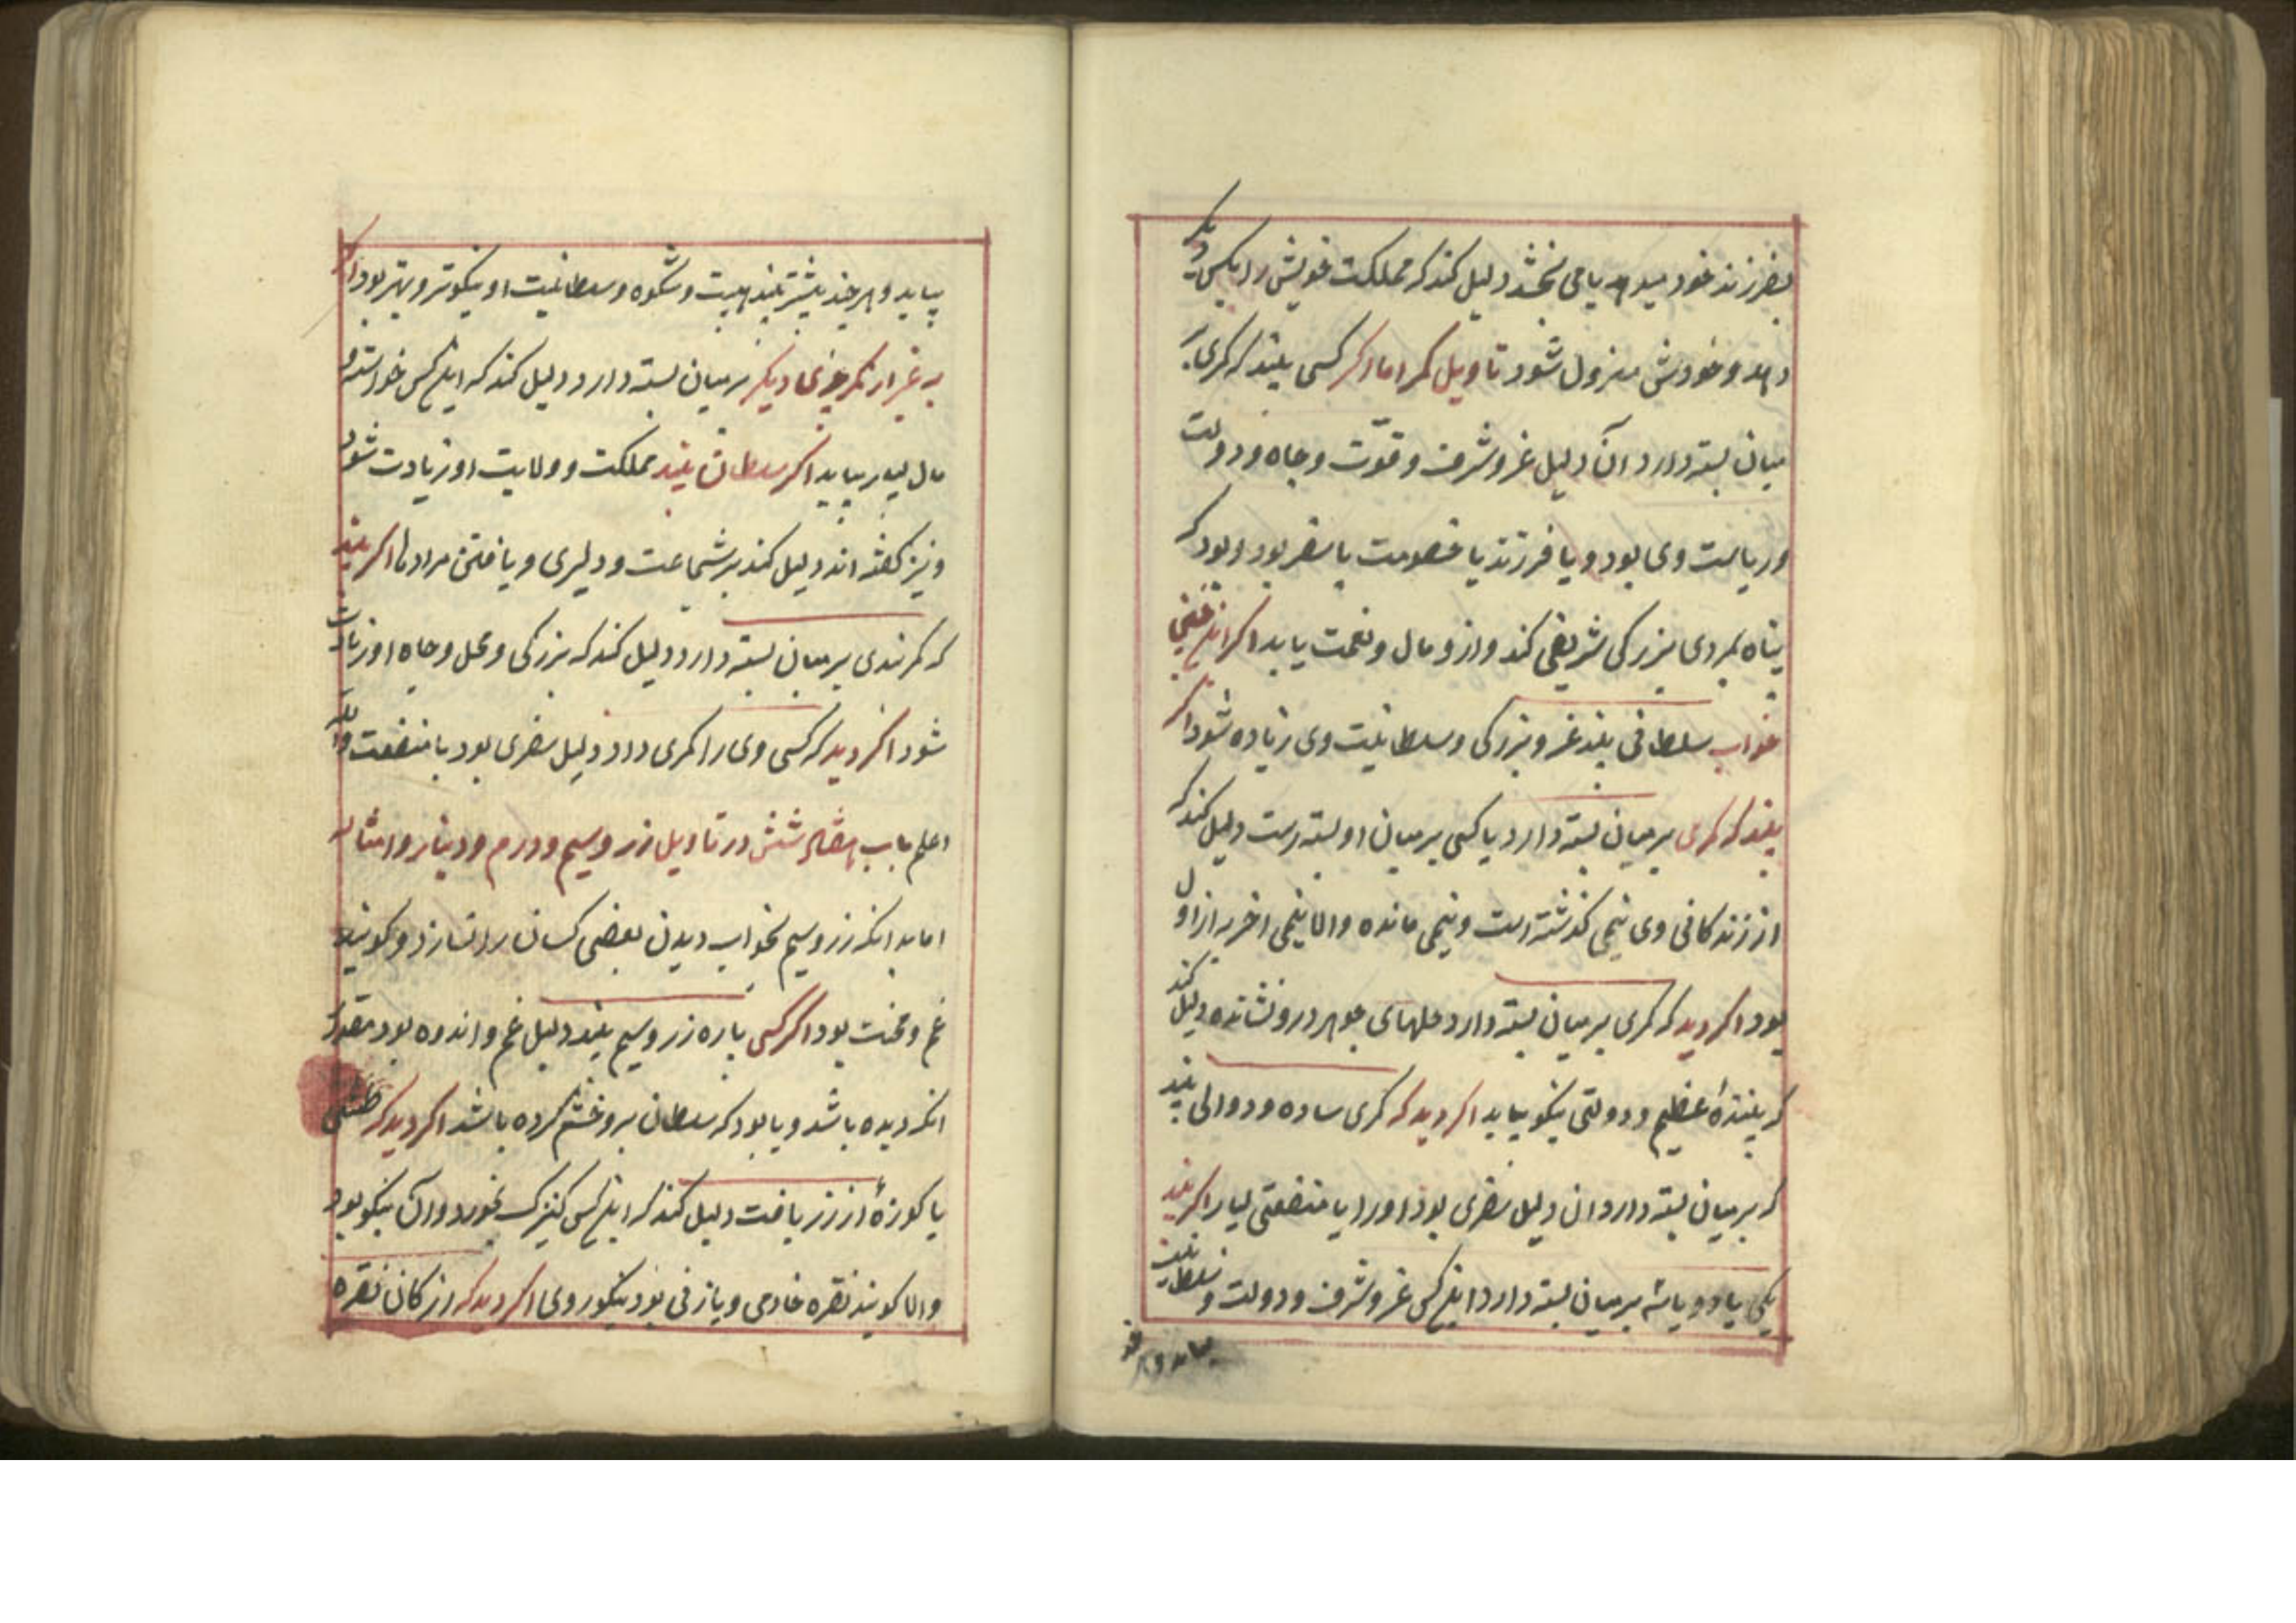 بفرزند خود میدهد یا می بخشد دلیل کند که مملکت خویش را بکسی دیکر
دهد و خودش معزول شود تاویل کمر اما اکر کسی بیند که کمری بر
میان بسته دارد آن دلیل عز و شرف و قوّت و جاه و دولت
و ریاست وی بود و یا فرزند یا خصومت یا سفر بود و بود که
پناه بمردی بزرکی شریفی کند و ازو مال و نعمت یابد اکر اینچنین
خواب سلطانی بیند عز و بزرکی و سلطانیت وی زیاده شود اکر
بیند که کمری بر میان بسته دارد یا کسی بر میان او بسته است دلیل کند که
از زندکانی وی نیمی کذشته است و نیمی مانده والا نیمی اخر به از اول
بود اکر دید که کمری بر میان بسته دارد حلهای جوهر درو نشانده دلیل کند
که بیننده عظیم و دولتی نیکو بیابد اکر دید که کمری ساده و دوالی بیند
که بر میان بسته دارد ان دلیل سفری بود او را با منفعتی بسیار اکر بیند
یکی یا دو یا سه بر میان بسته دارد اینکس عز و شرف و دولت و سلطانیت
بیابد و هر چند
بیابد و هر چند بیشتر بیند هیبت و شکوه و سلطانیت او نیکوتر و بهتر بود اکر
به غیر از کمر چیزی دیکر بر میان بسته دارد دلیل کند که اینکس خواسته و
مال بسیار بیابد اکر سلطان بیند مملکت و ولایت او زیادت شود
و نیز کفته اند دلیل کند بر شجاعت و دلیری و یافتن مرادها اکر بیند
که کمربندی بر میان بسته دارد دلیل کند که بزرکی و محل و جاه او زیادت
شود اکر دید که کسی وی را کمری داد دلیل سفری بود با منفعت والله
اعلم باب هفتاد شش در تاویل زر و سیم و درم و دینار و امثاله
اما بدانکه زر و سیم بخواب دیدن بعضی کسان را نسازد و کویند
غم و محنت بود اکر کسی پاره زر و سیم بیند دلیل غم و اندوه بود بقدر
انکه دیده باشد و یا بود که سلطان برو خشم کرده باشد اکر دید که طشتی
یا کوزهٔ از زر یافت دلیل کند که اینکس کنیزک بخورد و آن نیکو بود
والا کویند نقره خادمی و یا زنی بود نیکو روی اکر دید که از کان نقره